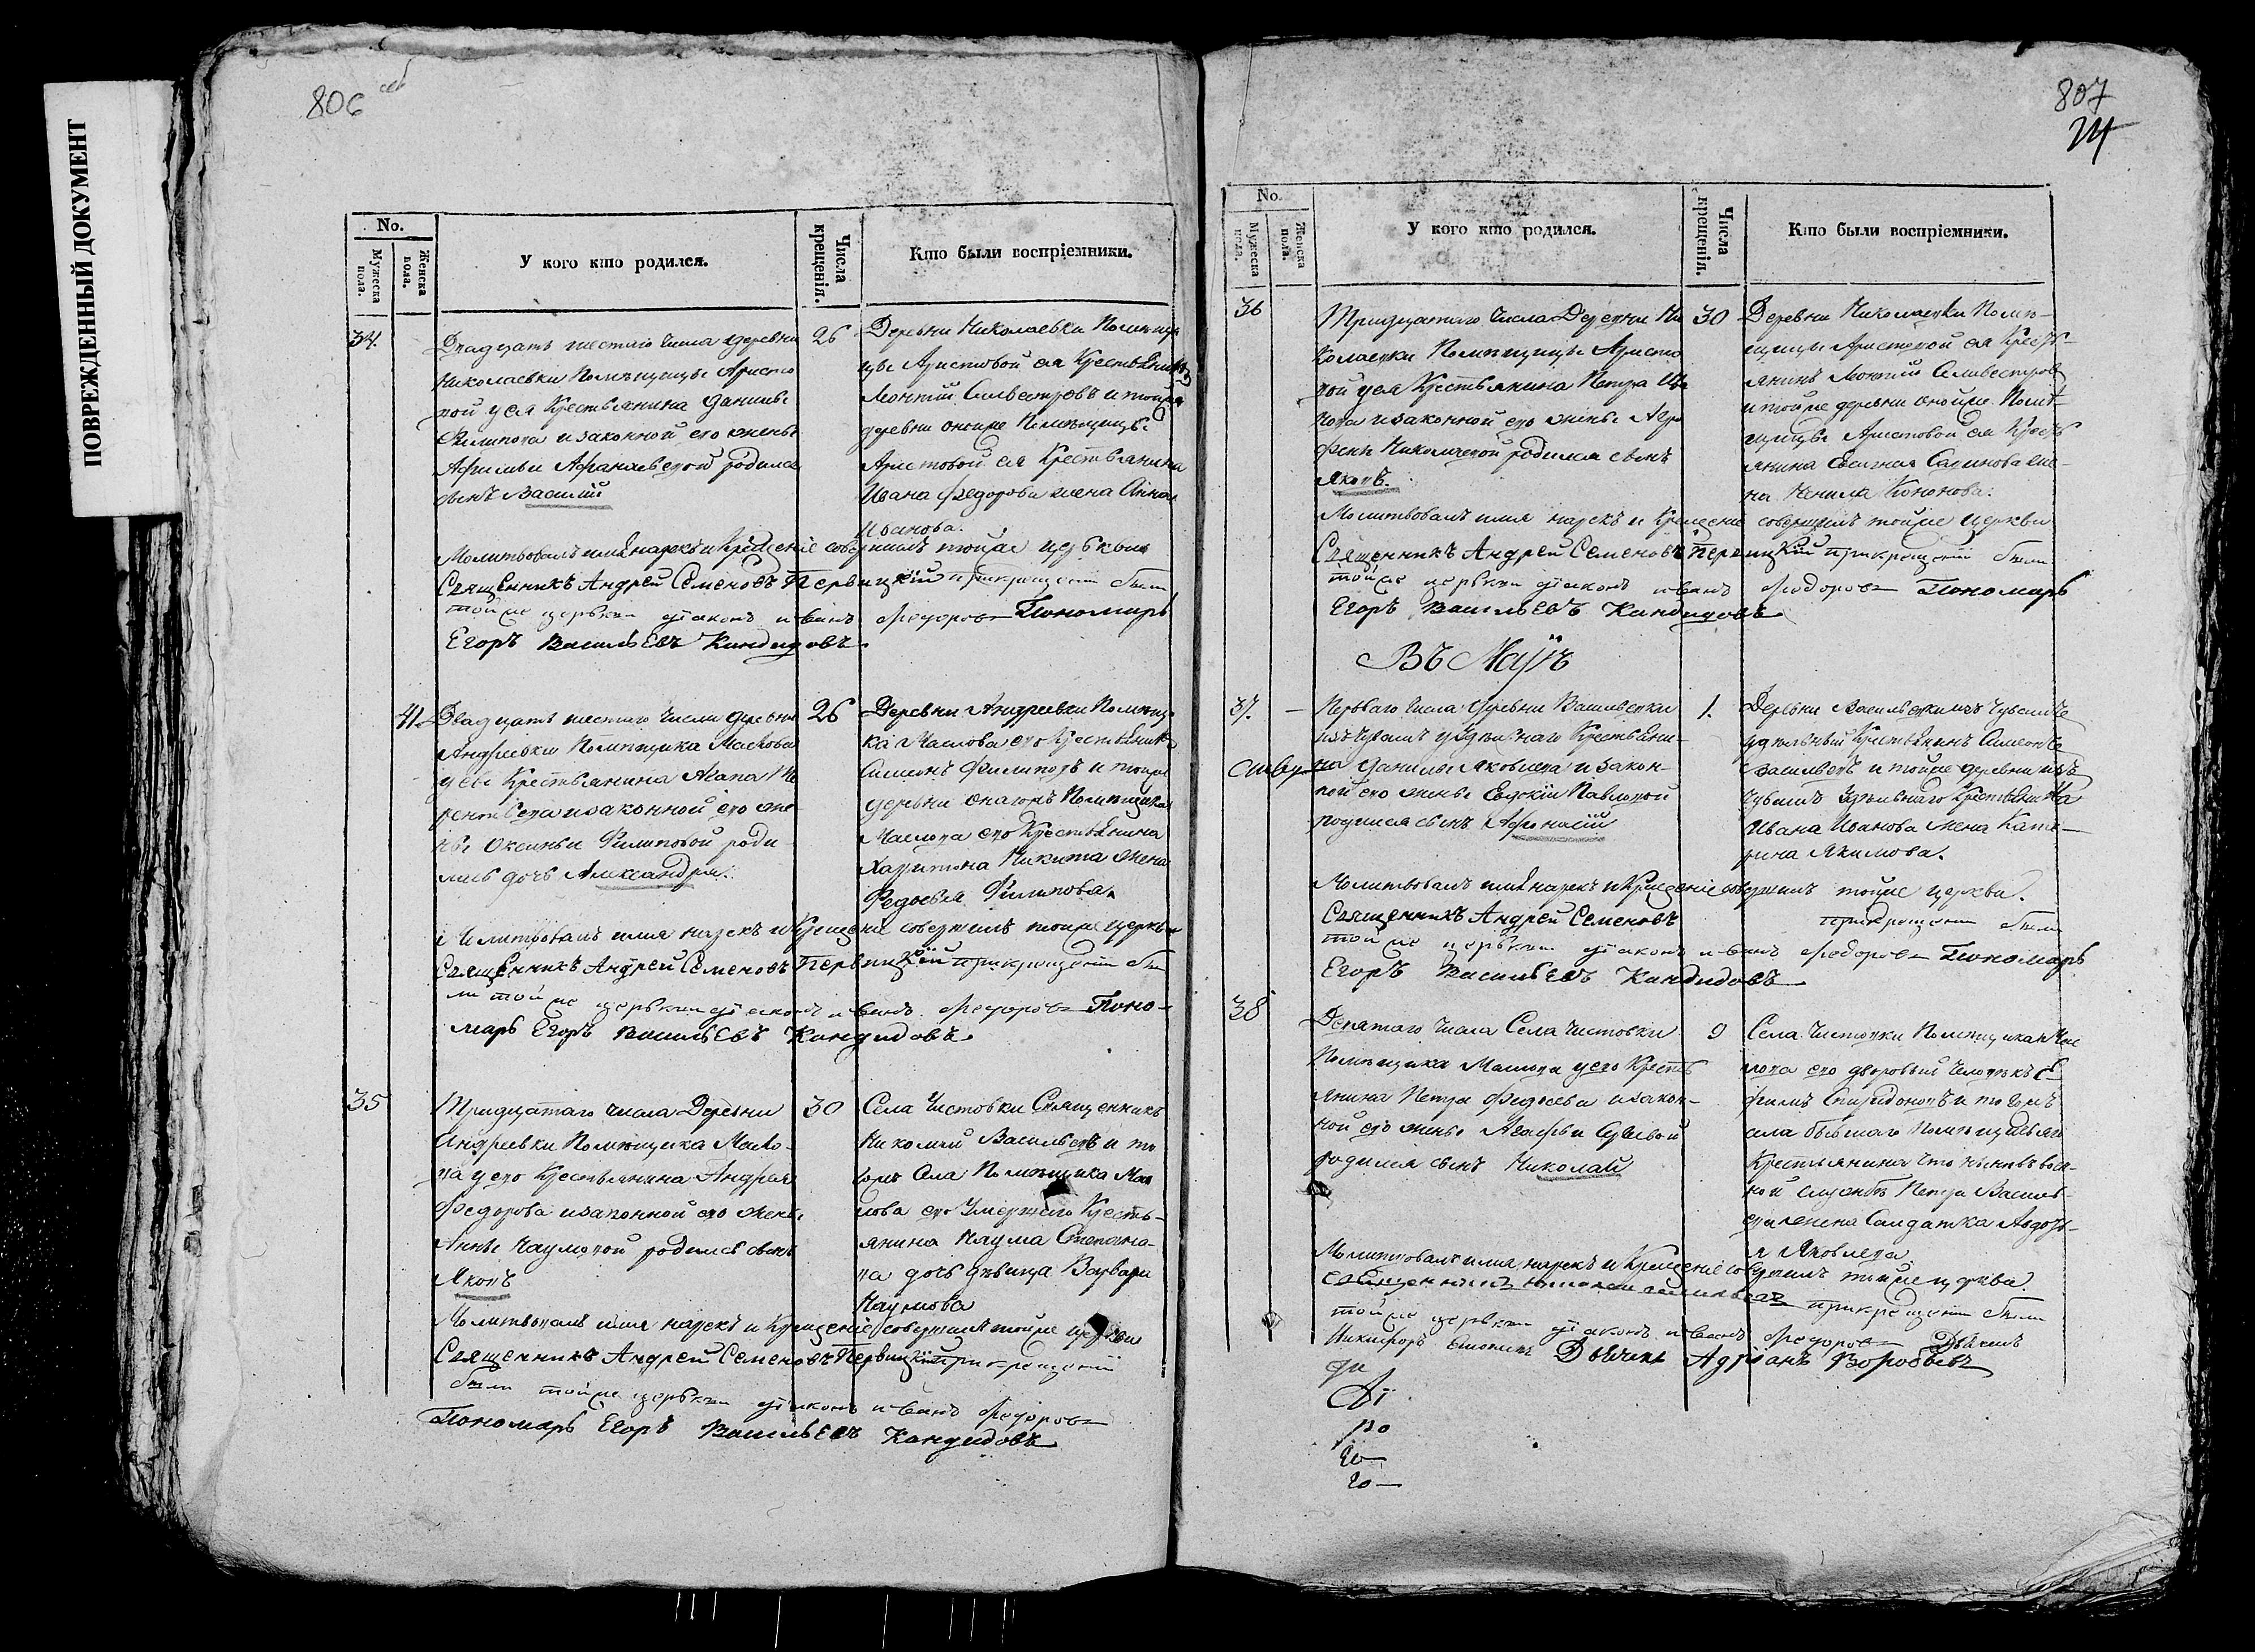 ПОВРЕЖДЕННЫЙ ДОКУМЕНТ
806
No.
Мужеска пола.
Женска пола.
У кого кто родился.
Числа крещенія.
Кто были воспріемники.
34.
Двадцать шестаго числа деревни
Николаевки Помѣщицы Аристо
вой у ея Крестьянина Данилы
Филипова и законной его жены
родился
сынъ Василій
26
Деревни Николаевки Помѣщи
цы Аристовой ея Крестьянинъ
Леонтій Сильвестровъ и тойже
деревни онойже Помѣщицы
Аристовой ея Крестьянина
Ивана Федорова жена Анна
Иванова.
Молитвовалъ имя нарекъ и Крещеніе совершилъ тойже церкви
Священникъ Андрей Семеновъ Первицкій при крещеніи были
тойже церкви діаконъ иванъ федоровъ Пономарь
Егоръ Васильевъ Кандидовъ.
41.
Двадцать шестаго числа деревни
Андреевки Помѣщика Маслова
у его Крестьянина
законной его же
ны Оксиньи Филиповой роди
лась дочь Александра.
26
Деревни Андреевки Помѣщи
ка Маслова его Крестьянинъ
Симеонъ Филиповъ и тойже
деревни Помѣщика
Маслова его Крестьянина
Харитона Никита жена
Федосья Филипова.
Молитвовалъ имя нарекъ и Крещеніе совершилъ тойже церкви
Священникъ Андрей Семеновъ Первицкій при крещеніи бы
ли тойже церкви діаконъ иванъ федоровъ Поно-
марь Егоръ Васильевъ Кандидовъ.
35
Тридцатаго числа Деревни
Андреевки Помѣщика Масло-
ва у его Крестьянина Андрея
Федорова и законной его жены
Анны Наумовой родился сынъ
Яковъ
30
Села Чистовки Священникъ
Николай Васильевъ и то
гожъ Села Помѣщика Мас
лова его Умершего Кресть-
янина Наума Степано-
ва дочь девица Варвара
Наумова
Молитвовалъ имя нарекъ и Крещеніе совершилъ тойже церкви
Священникъ Андрей Семеновъ Первицкій при крещеніи
были тойже церкви діаконъ иванъ федоровъ
Пономарь Егоръ Васильевъ Кандидовъ
807
24
No.
Мужеска пола.
Женска пола.
У кого кто родился.
Числа крещенія.
Кто были воспріемники.
36
Тридцатаго числа Деревни Ни
колаевки Помѣщицы Аристо
вой у ея Крестьянина Петра Ива
нова и законной его жены Агра
фены Николаевой родился сынъ
Яковъ.
30
Деревни Николаевки Помѣ-
щицы Аристовой ея Кресть-
янинъ Леонтій Селивестровъ
и тойже деревни онойже Помѣ-
щицы Аристовой ея Кресть
янина же-
на Ненила Кононова.
Молитвовалъ имя нарекъ и Крещеніе совершилъ тойже церкви
Священникъ Андрей Семеновъ Первицкій при крещеніи были
тойже церкви діаконъ иванъ федоровъ Пономарь
Егоръ Васильевъ Кандидовъ
Въ Маіѣ
37.
Перваго числа деревни Васильевки
изъ Чувашъ удѣльнаго Крестьяни-
на Данилы Яковлева и закон-
ной его жены Евдокіи Павловой
родился сынъ Афонасій
1.
Деревни Васильевки изъ Чувашъ
удѣльный Крестьянинъ Симеонъ
Васильевъ и тойже деревни изъ
Чувашъ Удѣльнаго Крестьянина
Ивана Иванова жена Кате-
рина Якимова.
Молитвовалъ имя нарекъ и Крещеніе совершилъ тойже церкви.
Священникъ Андрей Семеновъ при крещеніи были
тойже церкви діаконъ иванъ федоровъ Пономарь
Егоръ Васильевъ Кандидовъ
38
Девятаго числа Села Чистовки
Помѣщика Маслова у его Кресть
янина Петра Федосеева и закон-
ной его жены Агафьи
родился сынъ Николай
9
Села Чистовки Помѣщика Мас
лова его дворовый человѣкъ Е
фимъ Спиридоновъ и тогожъ
села бывшаго
Крестьянина что нынѣ въ воен-
ной службѣ Петра Василь-
ева жена Салдатка Авдоть-
я Яковлева
Молитвовалъ имя нарекъ и Крещеніе совершилъ тойже церкви
священникъ при крещеніи были
тойже церкви діаконъ иванъ федоровъ Дьячекъ
Никифоръ Дьячекъ Адріанъ Воробьевъ
ро
го